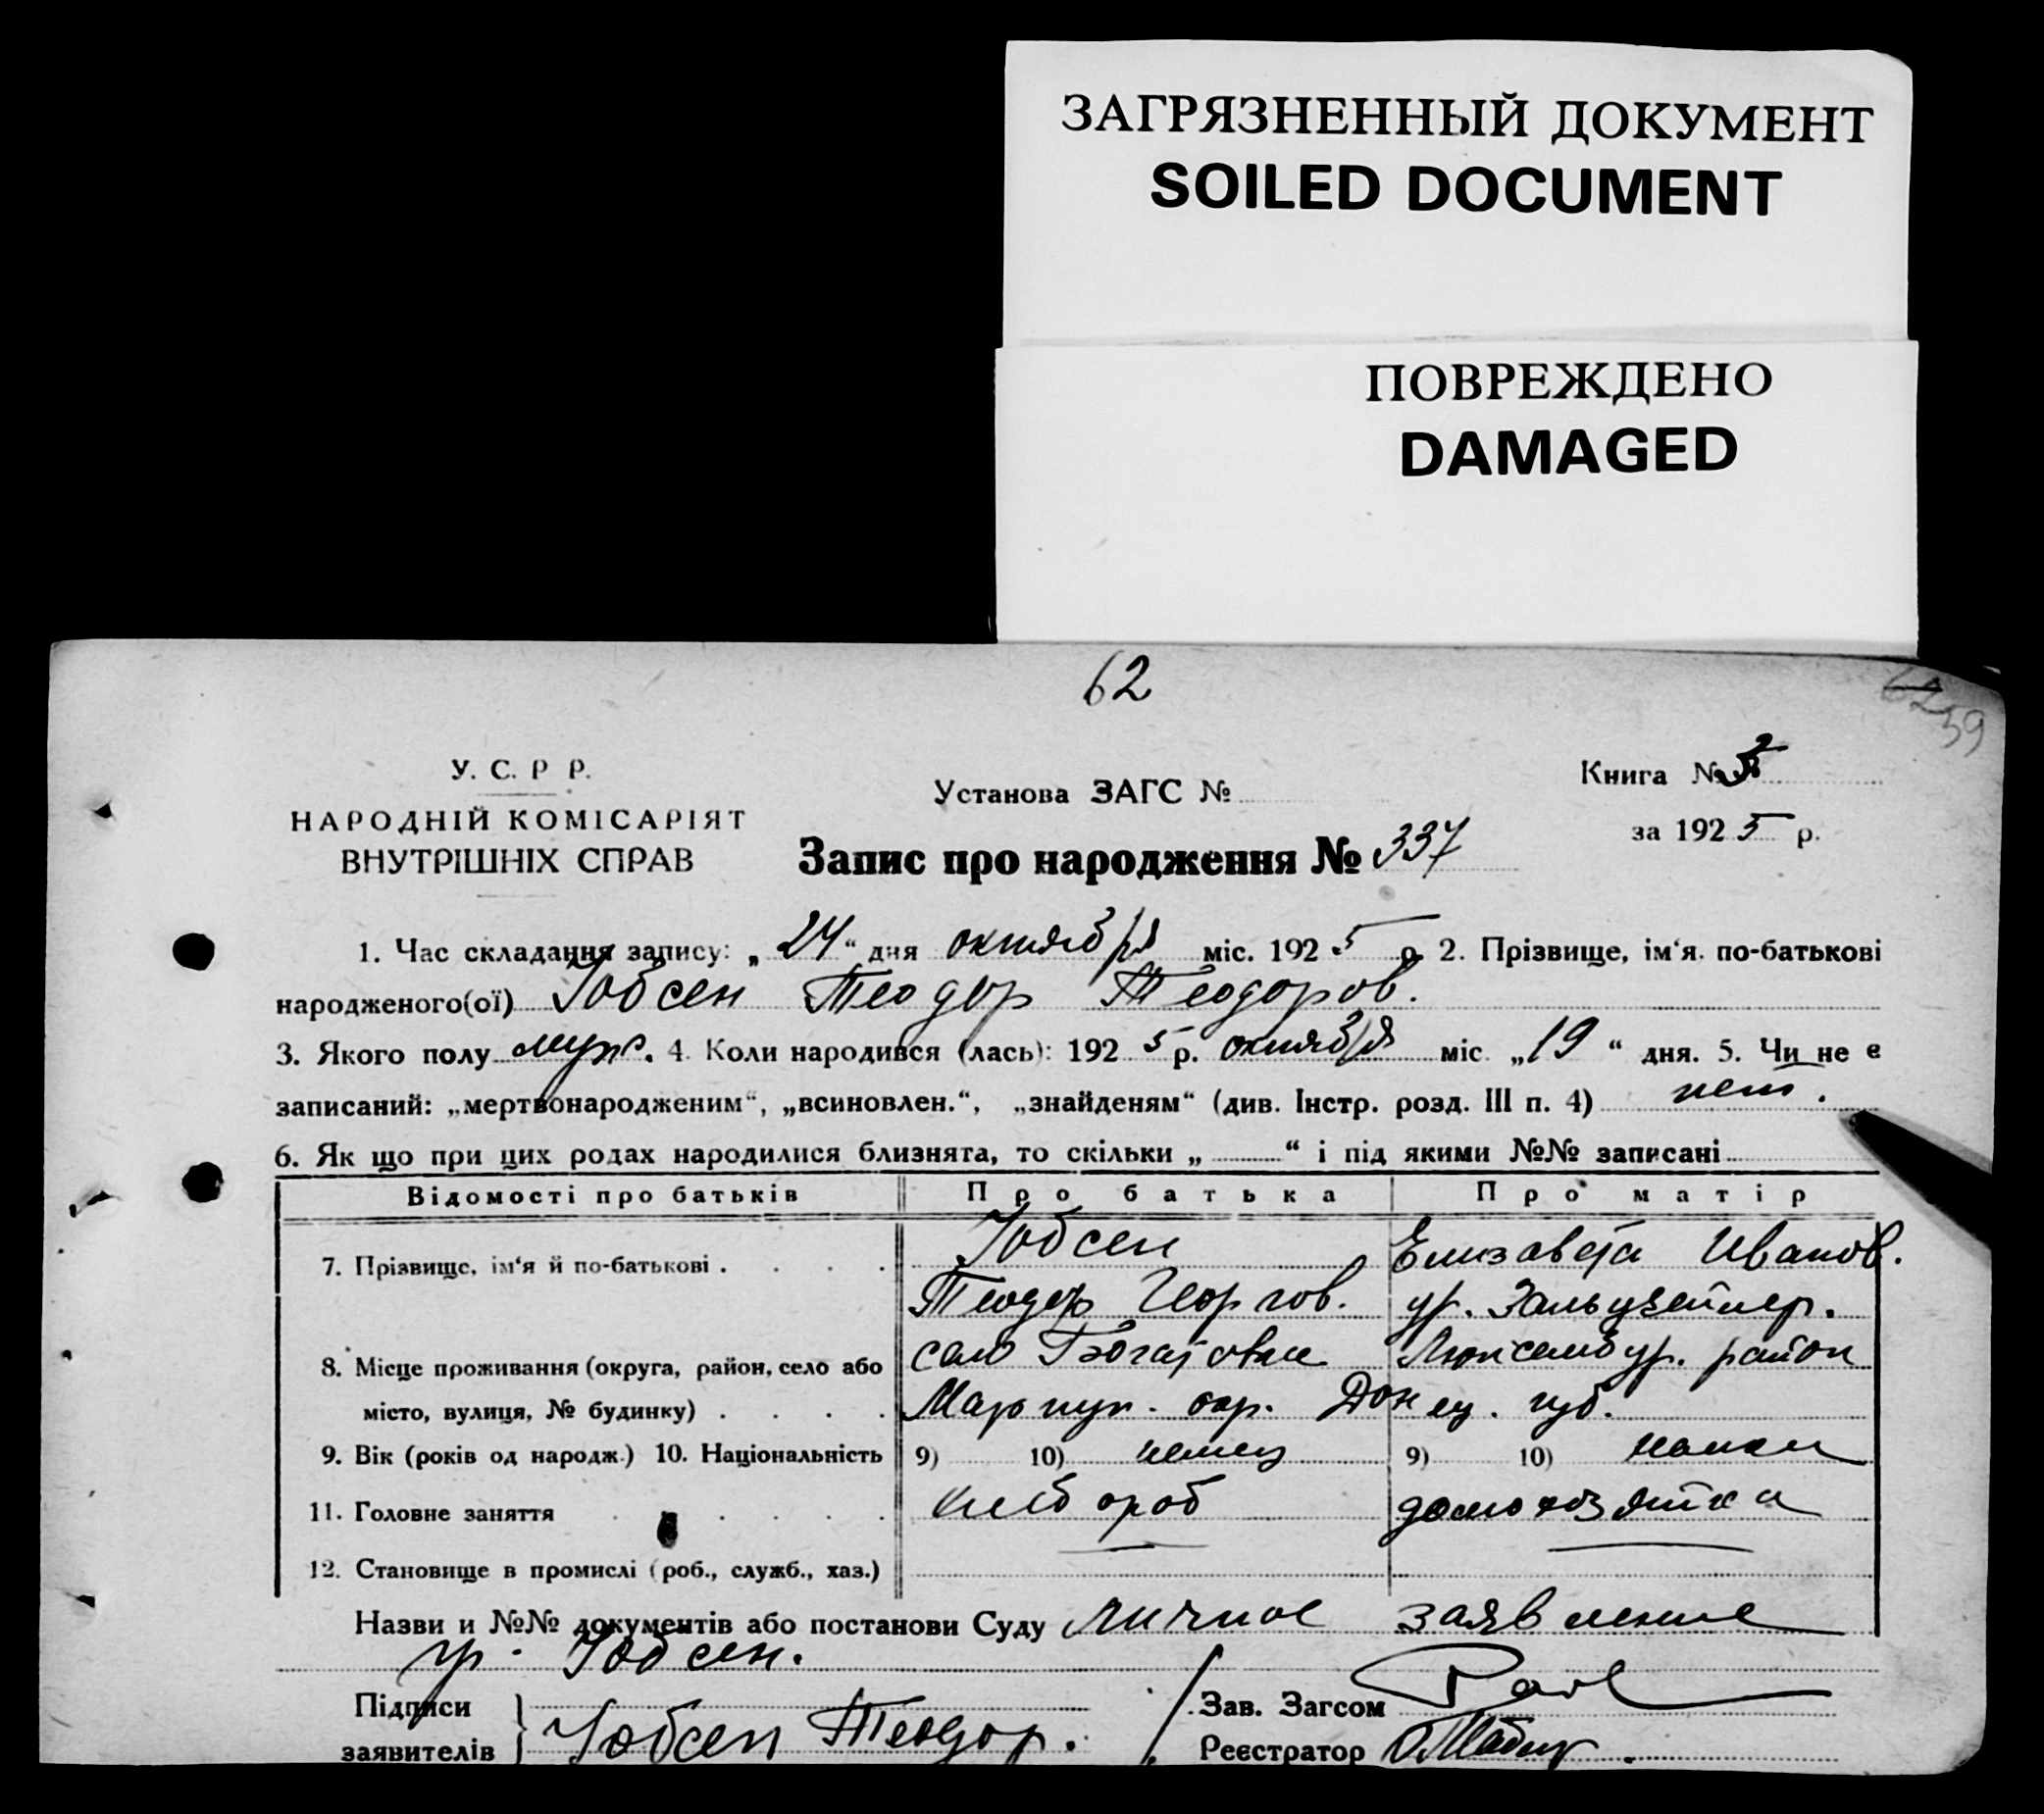 ЗАГРЯЗНЕННЫЙ ДОКУМЕНТ
SOILED DOCUMENT
ПОВРЕЖДЕНО
DAMAGED
62
59
У. С. Р Р.
НАРОДНІЙ КОМІСАРІЯТ
ВНУТРІШНІХ СПРАВ
Установа ЗАГС №
Запис про народження № 337
Книга №
за 1925 р.
1. Час складання запису: „24“ дня октября міс. 1925 р. 2. Прізвище, ім‘я. по-батькові
народженого(ої) Гобсен Теодор Теодоров.
3. Якого полу муж. 4. Коли народився (лась): 1925 р. октября міс. „19“ дня. 5. Чи не є
записаний: „мертвонародженим“, „всиновлен.“, „знайденям“ (див. Інстр. розд. III п. 4) нет.
6. Як що при цих родах народилися близнята, то скільки „ “ і під якими №№ записані
Відомості про батьків Про батька Про матір
7. Прізвище, ім‘я й по-батькові . . . . Гобсен Елизавета Иванов.
Теодор Георгов. ур. Зальцзейлер.
село Богатовка Люксембур. район
8. Місце проживання (округа, район, село або
місто, вулиця, № будинку) . . . . Мариуп. окр. Донец. губ.
9. Вік (років од народж.) 10. Національність 9) 10) немец 9) 10) немка
11. Головне заняття . . . . . хлебороб домохозяйка
12. Становище в промислі (роб., служб., хаз.)
Назви и №№ документів або постанови Суду Личное заявление
гр. Гобсен.
Підписи
заявителів Гобсен Теодор.
Зав. Загсом
Реєстратор